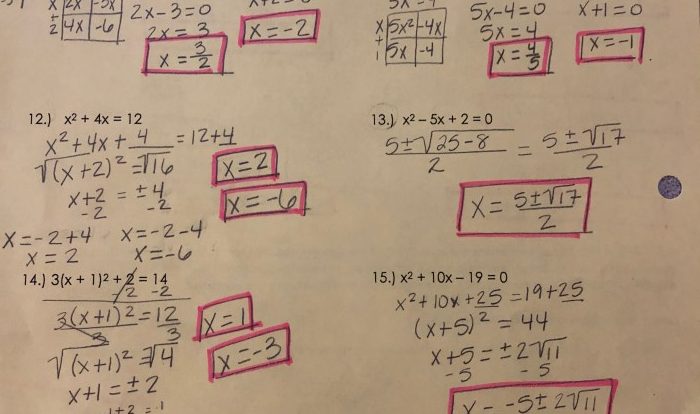 x 2x -3x 2x-3=0 x+2=0
+2 4x -6 2x = 3 x=-2
x = 3/2
5x -4
x 5x² -4x 5x-4=0 x+1=0
+1 5x -4 5x = 4 x=-1
x = 4/5
12.) x² + 4x = 12
x² + 4x + 4 = 12+4
√(x+2)² = √16 x=2
x+2 = ±4 x=-6
-2 -2
x=-2+4 x=-2-4
x = 2 x=-6
13.) x² – 5x + 2 = 0
5±√25-8 / 2 = 5±√17 / 2
x = 5±√17 / 2
14.) 3(x + 1)² + 2 = 14
-2 -2
3(x+1)² = 12 x=1
3 3
√(x+1)² = √4 x=-3
x+1 = ±2
15.) x² + 10x – 19 = 0
x² + 10x + 25 = 19+25
(x+5)² = 44
x+5 = ±2√11
-5 -5
x = -5±2√11